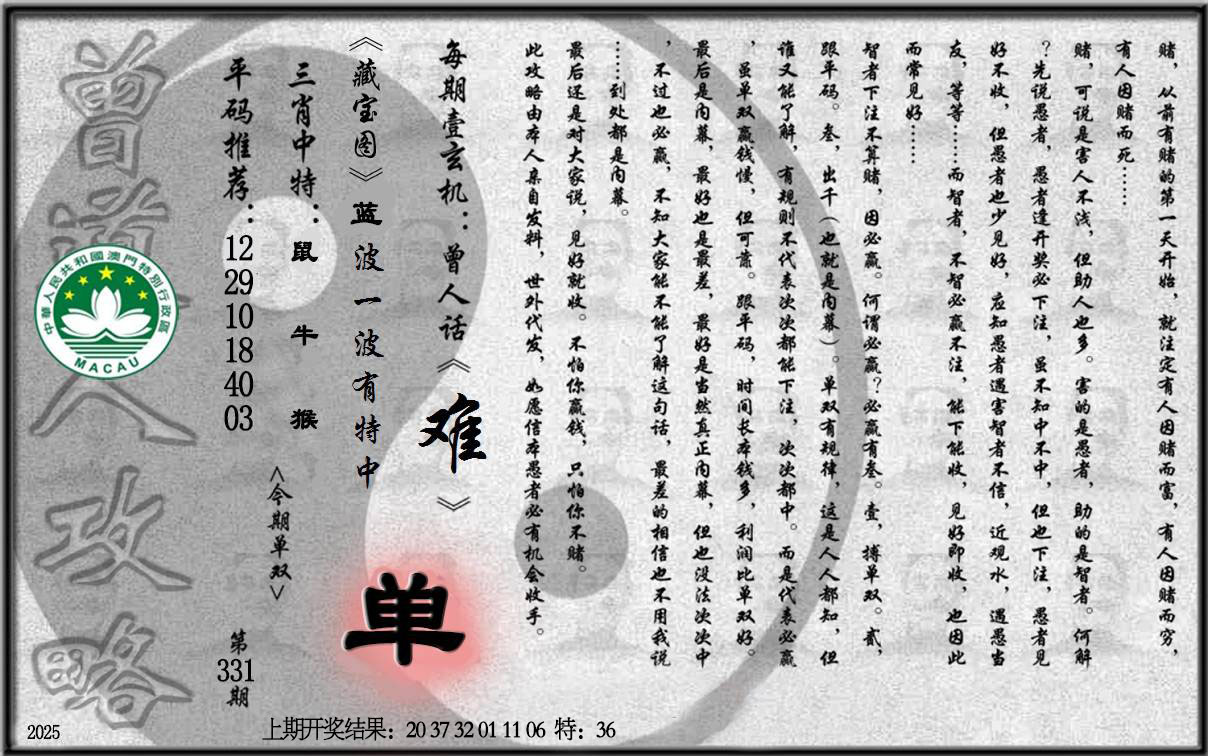 赌，从前有赌的第一天开始，就注定有人因赌而富，有人因赌而穷，
有人因赌而死……
赌，可说是害人不浅，但助人也多。害的是愚者，助的是智者。何解
？先说愚者，愚者逢开奖必下注，虽不知中不中，但也下注，愚者见
好不收，但愚者也少见好，应知愚者遇害智者不信，近观水，遇愚当
友，等等……而智者，不智必赢不注，能下能收，见好即收，也因此
而常见好……
智者下注不算赌，因必赢。何谓必赢？必赢有叁。壹，搏单双。贰，
跟平码。叁，出千（也就是内幕）。单双有规律，这是人人都知，但
谁又能了解，有规则不代表次次都能下注，次次都中。而是代表必赢
，虽单双赢钱慢，但可靠。跟平码，时间长本钱多，利润比单双好。
最后是内幕，最好也是最差，最好是当然真正内幕，但也没法次次中
，不过也必赢，不知大家能不能了解这句话，最差的相信也不用我说
……到处都是内幕。
最后还是对大家说，见好就收。不怕你赢钱，只怕你不赌。
此攻略由本人亲自发料，世外代发，如愿信本愚者必有机会收手。
每期壹玄机：曾人话《难》
《藏宝图》蓝波一波有特中
单
三肖中特：鼠 牛 猴
<今期单双>
平码推荐：12 29 10 18 40 03
第331期
曾道人攻略
中華人民共和國澳門特別行政區
MACAU
2025
上期开奖结果：20 37 32 01 11 06 特：36